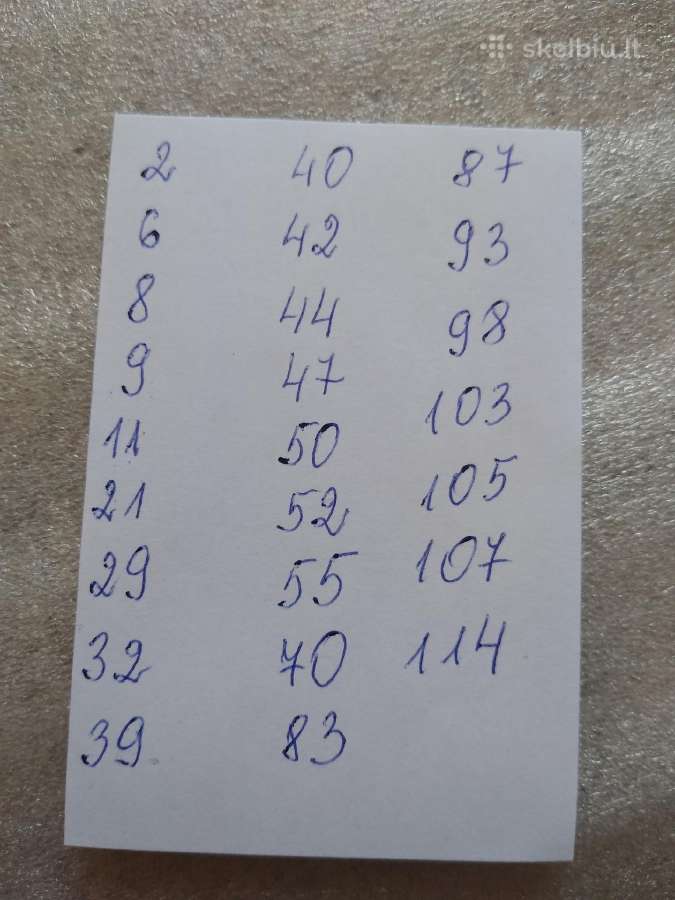 skelbiu.lt
2 40 87
6 42 93
8 44 98
9 47 103
11 50 105
21 52 107
29 55 114
32 70
39 83